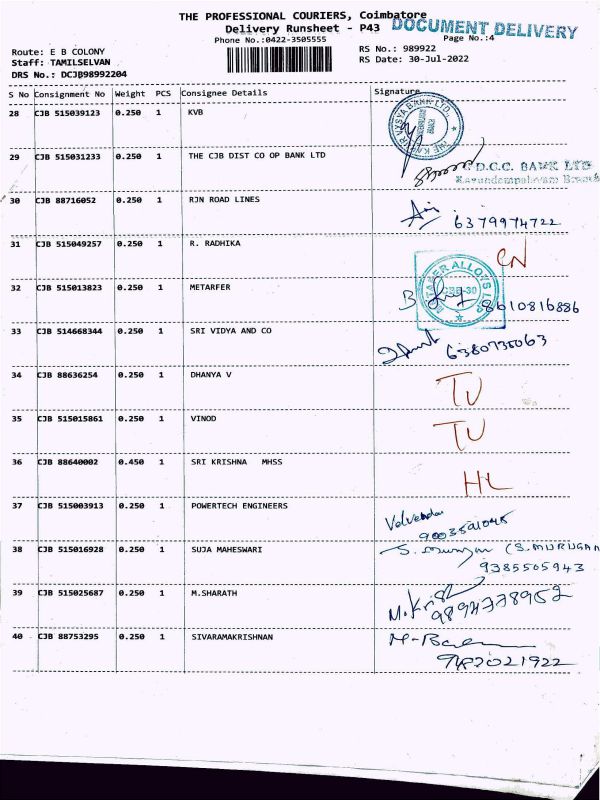 THE PROFESSIONAL COURIERS, Coimbatore
Delivery Runsheet - P43 DOCUMENT DELIVERY
Phone No.:0422-3505555 Page No.:4
Route: E B COLONY RS No.: 989922
Staff: TAMILSELVAN RS Date: 30-Jul-2022
DRS No.: DCJB98992204
S No Consignment No Weight PCS Consignee Details Signature
28 CJB 515039123 0.250 1 KVB
29 CJB 515031233 0.250 1 THE CJB DIST CO OP BANK LTD
D.C.C. BANK LTD
30 CJB 88716052 0.250 1 RJN ROAD LINES
6379974722
31 CJB 515049257 0.250 1 R. RADHIKA
CN
32 CJB 515013823 0.250 1 METARFER
8610816886
33 CJB 514668344 0.250 1 SRI VIDYA AND CO
6380735063
34 CJB 88636254 0.250 1 DHANYA V
TU
35 CJB 515015861 0.250 1 VINOD
TU
36 CJB 88640002 0.450 1 SRI KRISHNA MHSS
HL
37 CJB 515003913 0.250 1 POWERTECH ENGINEERS
38 CJB 515016928 0.250 1 SUJA MAHESWARI
S. Murugan (S.MURUGAN
9385505943
39 CJB 515025687 0.250 1 M.SHARATH
40 CJB 88753295 0.250 1 SIVARAMAKRISHNAN